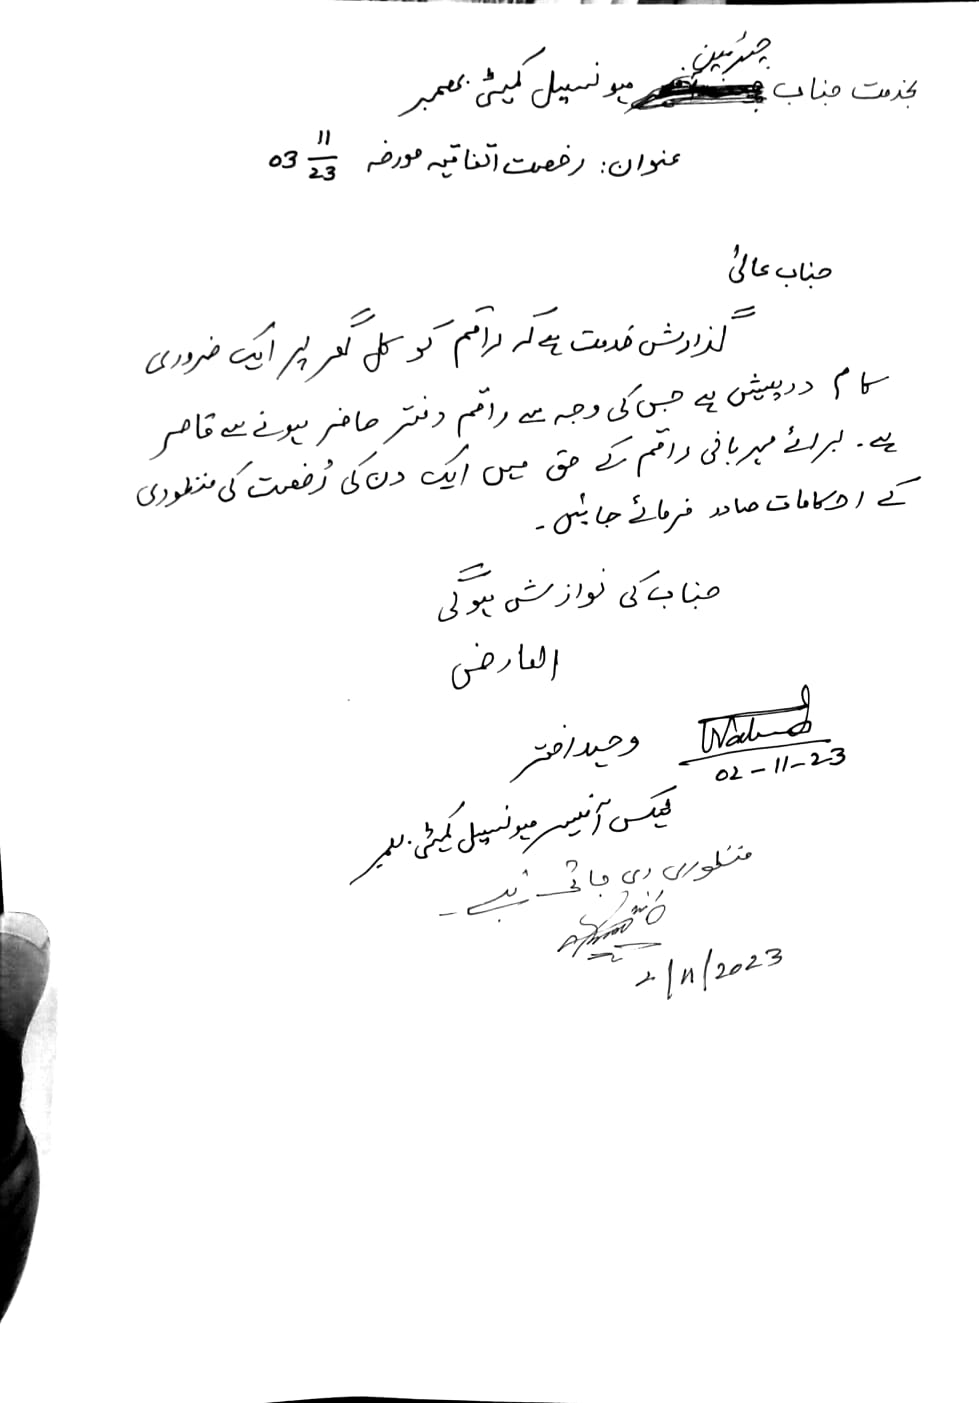 بخدمت جناب چیئرمین میونسپل کمیٹی بھمبر
عنوان: رخصت اتفاقیہ مورخہ 03 11/23
جناب عالیٰ
گذارش خدمت ہے کہ راقم کو کل گھر پر ایک ضروری
کام درپیش ہے جس کی وجہ سے راقم دفتر حاضر ہونے سے قاصر
ہے۔ برائے مہربانی راقم کے حق میں ایک دن کی رُخصت کی منظوری
کے احکامات صادر فرمائے جائیں۔
جناب کی نوازش ہوگی
العارض
وحید اختر
02-11-23
ٹیکس آفیسر میونسپل کمیٹی بھمبر
منظوری دی جاتی ہے۔
2/11/2023